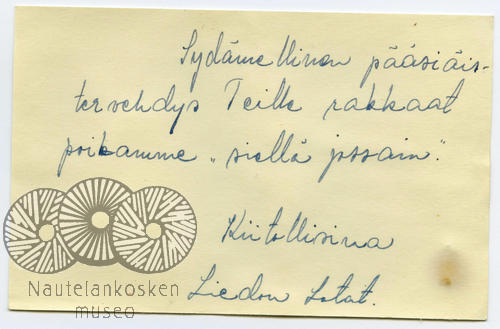 Sydämellinen pääsiäis-
tervehdys Teille rakkaat
poikamme "siellä jossain".
Kiitollisina
Liedon Lotat.
Nautelankosken
museo